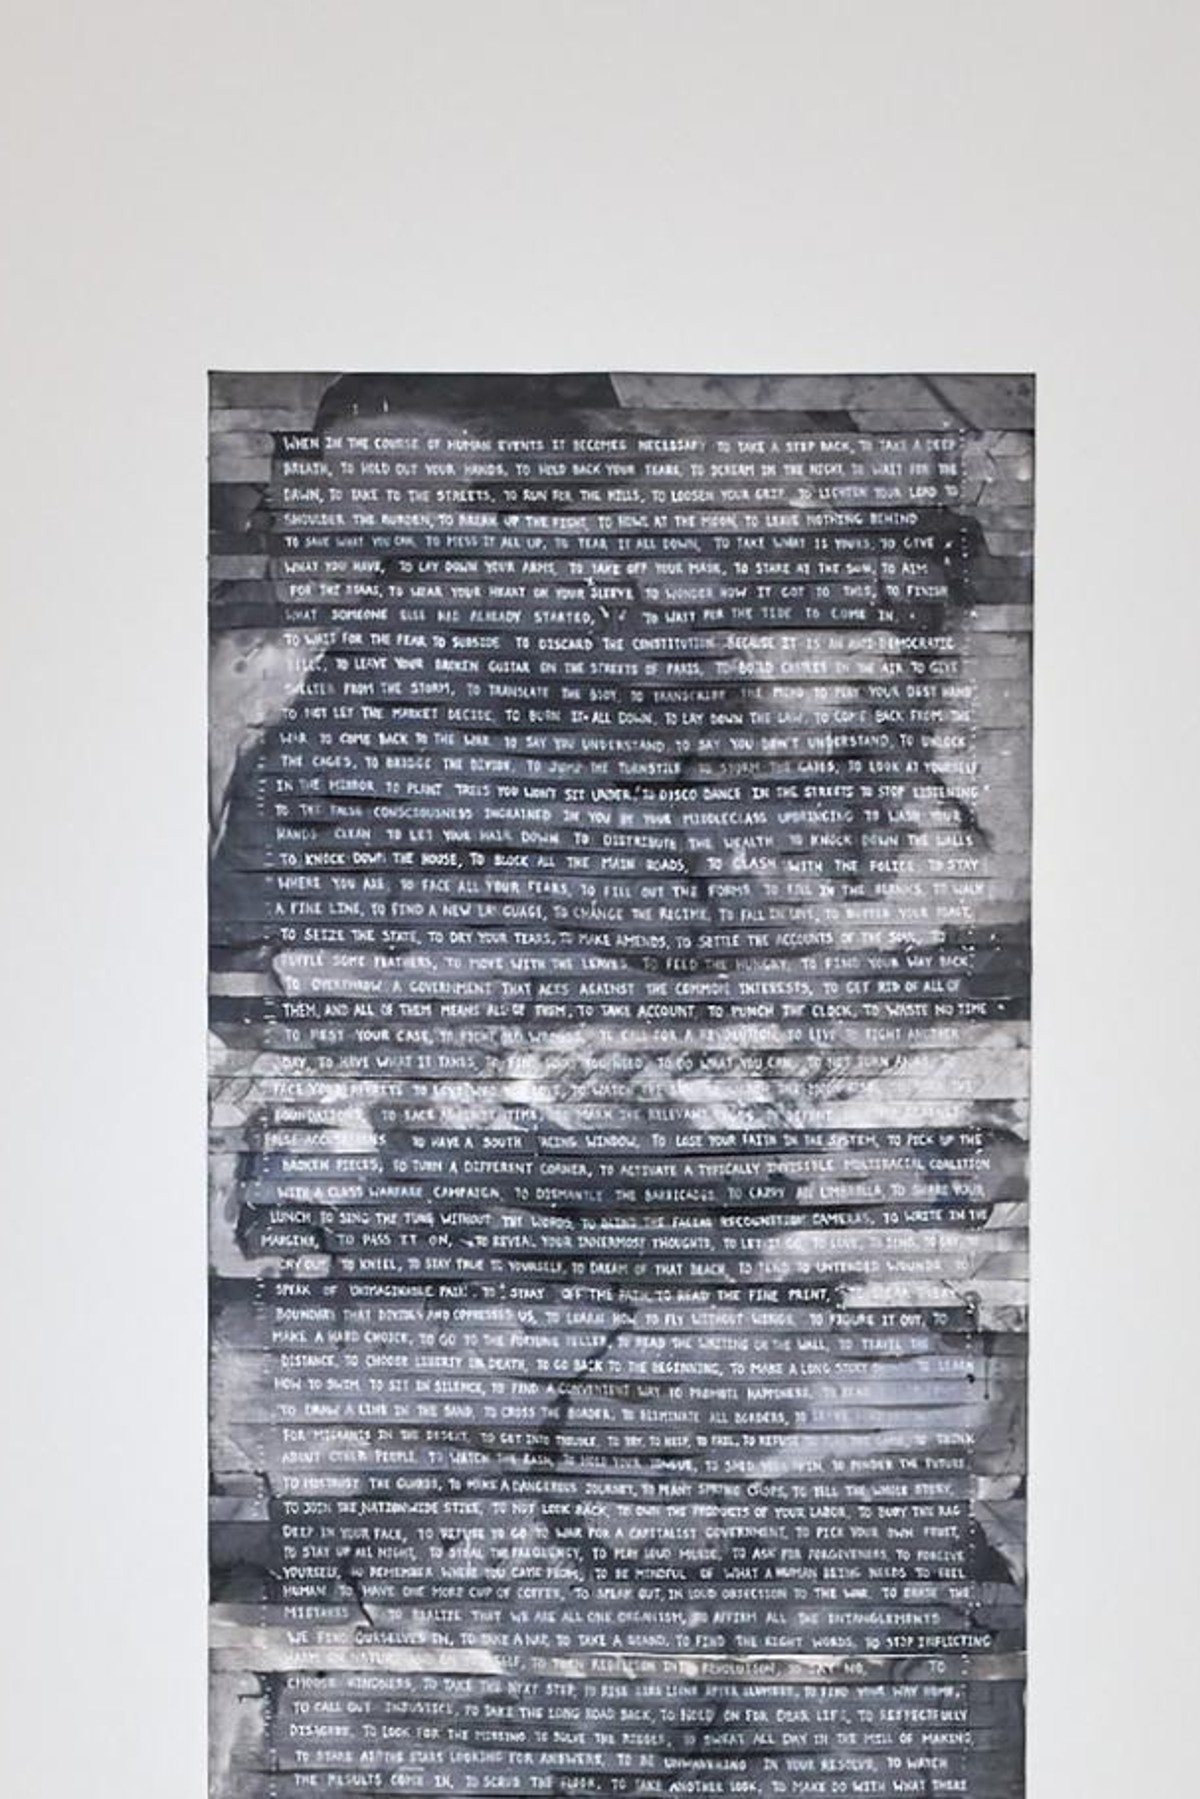 WHEN IN THE COURSE OF HUMAN EVENTS IT BECOMES NECESSARY TO TAKE A STEP BACK, TO TAKE A DEEP
BREATH, TO HOLD OUT YOUR HANDS, TO HOLD BACK YOUR TEARS, TO SCREAM IN THE NIGHT, TO WAIT FOR THE
DAWN, TO TAKE TO THE STREETS, TO RUN FOR THE HILLS, TO LOOSEN YOUR GRIP, TO LIGHTEN YOUR LOAD TO
SHOULDER THE BURDEN, TO BREAK UP THE FIGHT, TO HOWL AT THE MOON, TO LEAVE NOTHING BEHIND
TO SAVE WHAT YOU CAN, TO MESS IT ALL UP, TO TEAR IT ALL DOWN, TO TAKE WHAT IS YOURS, TO GIVE
WHAT YOU HAVE, TO LAY DOWN YOUR ARMS, TO TAKE OFF YOUR MASK, TO STARE AT THE SUN, TO AIM
FOR THE STARS, TO WEAR YOUR HEART ON YOUR SLEEVE TO WONDER HOW IT GOT TO THIS, TO FINISH
WHAT SOMEONE ELSE HAD ALREADY STARTED, TO WAIT FOR THE TIDE TO COME IN,
TO WAIT FOR THE FEAR TO SUBSIDE TO DISCARD THE CONSTITUTION BECAUSE IT IS AN ANTI-DEMOCRATIC
TO LEAVE YOUR BROKEN GUITAR ON THE STREETS OF PARIS, TO BUILD CASTLES IN THE AIR TO GIVE
SHELTER FROM THE STORM, TO TRANSLATE THE BODY, TO TRANSCRIBE THE MIND, TO PLAY YOUR BEST HAND
TO NOT LET THE MARKET DECIDE, TO BURN IT ALL DOWN, TO LAY DOWN THE LAW, TO COME BACK FROM THE
WAR TO COME BACK TO THE WAR TO SAY YOU UNDERSTAND, TO SAY YOU DON'T UNDERSTAND, TO UNLOCK
THE CAGES, TO BRIDGE THE DIVIDE, TO JUMP THE TURNSTILE TO STORM THE GATES, TO LOOK AT YOURSELF
IN THE MIRROR TO PLANT TREES YOU WON'T SIT UNDER, TO DISCO DANCE IN THE STREETS TO STOP LISTENING
TO THE FALSE CONSCIOUSNESS INGRAINED IN YOU BY YOUR MIDDLECLASS UPBRINGING TO WASH YOUR
HANDS CLEAN TO LET YOUR HAIR DOWN TO DISTRIBUTE THE WEALTH TO KNOCK DOWN THE WALLS
TO KNOCK DOWN THE HOUSE, TO BLOCK ALL THE MAIN ROADS, TO CLASH WITH THE POLICE TO STAY
WHERE YOU ARE, TO FACE ALL YOUR FEARS, TO FILL OUT THE FORMS TO FILL IN THE BLANKS, TO WALK
A FINE LINE, TO FIND A NEW LANGUAGE, TO CHANGE THE REGIME, TO FALL IN LOVE, TO BUTTER YOUR TOAST,
TO SEIZE THE STATE, TO DRY YOUR TEARS, TO MAKE AMENDS, TO SETTLE THE ACCOUNTS OF THE SOUL, TO
RUFFLE SOME FEATHERS, TO MOVE WITH THE LEAVES TO FEED THE HUNGRY, TO FIND YOUR WAY BACK
TO OVERTHROW A GOVERNMENT THAT ACTS AGAINST THE COMMON INTERESTS, TO GET RID OF ALL OF
THEM, AND ALL OF THEM MEANS ALL OF THEM, TO TAKE ACCOUNT TO PUNCH THE CLOCK, TO WASTE NO TIME
TO REST YOUR CASE, TO RIGHT OLD WRONGS, TO CALL FOR A REVOLUTION, TO LIVE TO FIGHT ANOTHER
DAY, TO HAVE WHAT IT TAKES, TO YOU NEED TO DO WHAT YOU CAN, TO NOT TURN AWAY
FACE YOUR REGRETS TO LOVE WHO YOU LOVE, TO WATCH THE
FOUNDATIONS, TO RACE AGAINST TIME, TO MARK THE RELEVANT
FALSE ACCUSATIONS TO HAVE A SOUTH FACING WINDOW, TO LOSE YOUR FAITH IN THE SYSTEM, TO PICK UP THE
BROKEN PIECES, TO TURN A DIFFERENT CORNER, TO ACTIVATE A TYPICALLY INVISIBLE MULTIRACIAL COALITION
WITH A CLASS WARFARE CAMPAIGN, TO DISMANTLE THE BARRICADES TO CARRY AN UMBRELLA, TO SHARE YOUR
LUNCH, TO SING THE TUNE WITHOUT THE WORDS, TO BLIND THE FACIAL RECOGNITION CAMERAS, TO WRITE IN THE
MARGINS, TO PASS IT ON, TO REVEAL YOUR INNERMOST THOUGHTS, TO LET IT GO, TO LOVE, TO SING, TO
CRY OUT TO KNEEL, TO STAY TRUE TO YOURSELF, TO DREAM OF THAT BEACH, TO TEND TO UNTENDED WOUNDS TO
SPEAK OF UNIMAGINABLE PAIN TO STRAY OFF THE PATH, TO READ THE FINE PRINT,
BOUNDARY THAT DIVIDES AND OPPRESSES US, TO LEARN HOW TO FLY WITHOUT WINGS, TO FIGURE IT OUT, TO
MAKE A HARD CHOICE, TO GO TO THE FORTUNE TELLER TO READ THE WRITING ON THE WALL, TO TRAVEL THE
DISTANCE, TO CHOOSE LIBERTY OR DEATH, TO GO BACK TO THE BEGINNING, TO MAKE A LONG STORY TO LEARN
HOW TO SWIM TO SIT IN SILENCE, TO FIND A CONVENIENT WAY TO PROMOTE HAPPINESS,
TO DRAW A LINE IN THE SAND, TO CROSS THE BORDER, TO ELIMINATE ALL BORDERS, TO
FOR MIGRANTS IN THE DESERT, TO GET INTO TROUBLE, TO TRY, TO HELP, TO FAIL, TO REFUSE TO THINK
ABOUT OTHER PEOPLE, TO WATCH THE RAIN, TO HOLD YOUR TONGUE, TO SHED YOUR SKIN, TO PONDER THE FUTURE
TO MISTRUST THE GUARDS, TO MAKE A DANGEROUS JOURNEY, TO PLANT SPRING CROPS, TO TELL THE WHOLE STORY,
TO JOIN THE NATIONWIDE STIKE, TO NOT LOOK BACK, TO OWN THE PRODUCTS OF YOUR LABOR, TO BURY THE RAG
DEEP IN YOUR FACE, TO REFUSE TO GO TO WAR FOR A CAPITALIST GOVERNMENT, TO PICK YOUR OWN FRUIT,
TO STAY UP ALL NIGHT, TO STEAL THE FREQUENCY, TO PLAY LOUD MUSIC, TO ASK FOR FORGIVENESS, TO FORGIVE
YOURSELF, TO REMEMBER WHERE YOU CAME FROM, TO BE MINDFUL OF WHAT A HUMAN BEING NEEDS TO FEEL
HUMAN TO HAVE ONE MORE CUP OF COFFEE, TO SPEAK OUT, IN LOUD OBJECTION TO THE WAR TO ERASE THE
MISTAKES TO REALIZE THAT WE ARE ALL ONE ORGANISM, TO AFFIRM ALL THE ENTANGLEMENTS
WE FIND OURSELVES IN, TO TAKE A NAP, TO TAKE A STAND, TO FIND THE RIGHT WORDS, TO STOP INFLICTING
HARM ON NATURE AND ON TO TURN REBELLION INTO REVOLUTION, TO SAY NO, TO
CHOOSE KINDNESS, TO TAKE THE NEXT STEP, TO RISE LIKE LIONS AFTER SLUMBER, TO FIND YOUR WAY HOME,
TO CALL OUT INJUSTICE, TO TAKE THE LONG ROAD BACK, TO HOLD ON FOR DEAR LIFE, TO RESPECTFULLY
DISAGREE, TO LOOK FOR THE MISSING TO SOLVE THE RIDDLE, TO SWEAT ALL DAY IN THE MILL OF MAKING,
TO STARE AT THE STARS LOOKING FOR ANSWERS, TO BE UNWAVERING IN YOUR RESOLVE, TO WATCH
THE RESULTS COME IN, TO SCRUB THE FLOOR, TO TAKE ANOTHER LOOK, TO MAKE DO WITH WHAT THERE